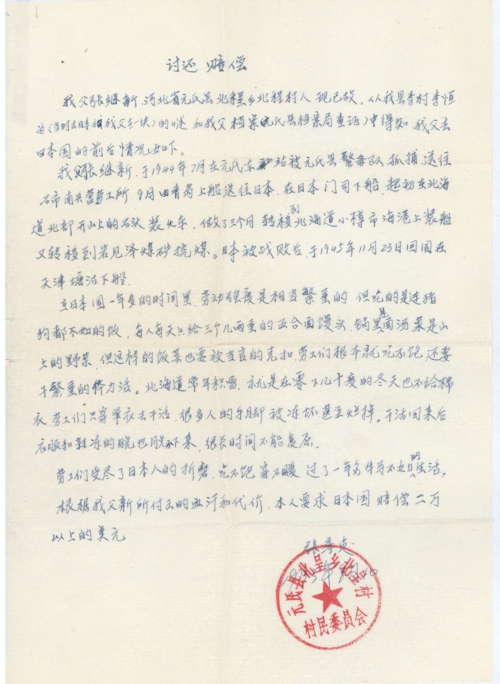 讨还 赔偿
我父张继新,河北省元氏县北褚乡北褚村人 现已故,从我县李村李恒
(当时去日本俩我父亲一块)的口述 和我父档案(元氏县档案局查证)中得知,我父去
日本国的前后情况如下。
我父张继新,于1944年7月在元氏东 站被元氏县警备队抓捕 送往
石市南兵营劳工所 9月由青岛上船送往日本,在日本门司下船,起初去北海
道北部开山上的石头 装火车,做了三个月 转移到北海道小樽市海港上装船
又转移到岩见泽煤矿挖煤。日本被战败后,于1945年11月23日回国在
天津塘沽下船。
在日本国一年多的时间里,劳动强度是相当繁重的 但吃的是连猪
狗都不如的饭,每人每天只给三个几两重的五合面馒头,锅里的汤菜是山
上的野菜,但这样的饭菜也要被当官的克扣,劳工们根本就吃不饱,还要
干繁重的体力活。北海道常年积雪,就是在零下几十度的冬天也不给棉
衣,劳工们只穿单衣去干活,很多人的手脚被冻坏甚至烂掉。干活回来后
衣服和鞋冻的脱也脱不下来,很长时间不能复原。
劳工们受尽了日本人的折磨,吃不饱穿不暖 过了一年多牛马不如的生活。
根据我父新所付出的血汗和代价,本人要求日本国赔偿二万
以上的美元
元氏县北呈乡北呈村
村民委员会